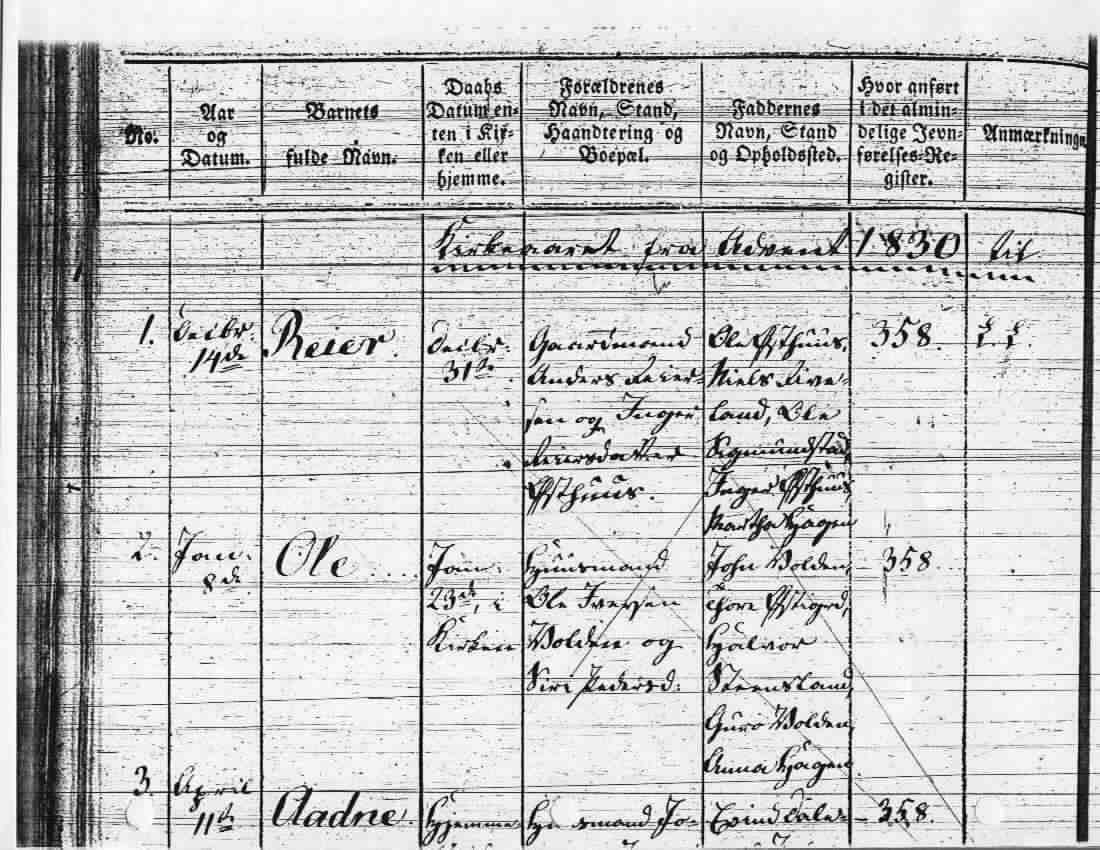 No:
Aar
og
Datum.
Barnets
fulde Navn.
Daabs
Datum en-
ten i Kir-
ken eller
hjemme.
Forældrenes
Navn, Stand,
Haandtering og
Boepæl.
Faddernes
Navn, Stand
og Opholdssted.
Hvor anført
i det almin-
delige Jevn-
førelses-Re-
gister.
Anmærkninge
Kirkeaaret fra Advent 1830 til
1.
Decbr.
14de
Reier.
Decbr.
31te
Gaardmand
Anders Reier-
sen og Inger
Reiersdatter
Østhuus.
Ole Østhuus,
Niels
land, Ole
Sigmundstad,
Inger Østhuus,
Martha Hagen
358.
2.
Jan.
8de
Ole
Jan.
23de, i
Kirken
Huusmand
Ole Iversen
Volden og
Siri Pedersd:
John Volden,
Thore
Halvor
Steensland,
Guro Volden,
Anna Hagen
358
3.
April
11te
Aadne.
Hjemme
Huusmand Jo-
Eivind
358.